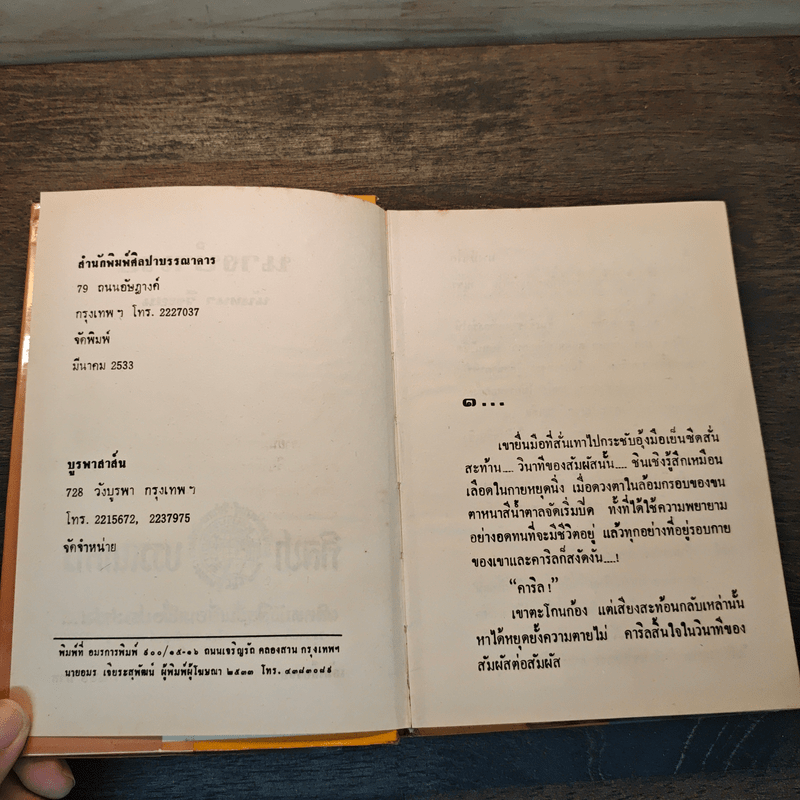 สำนักพิมพ์ศิลปาบรรณาคาร
79 ถนนอัษฎางค์
กรุงเทพฯ โทร. 2227037
จัดพิมพ์
มีนาคม 2533
บูรพาสาส์น
728 วังบูรพา กรุงเทพฯ
โทร. 2215672, 2237975
จัดจำหน่าย
พิมพ์ที่ อมรการพิมพ์ ๕๐๐/๑๕-๑๖ ถนนเจริญรัถ คลองสาน กรุงเทพฯ
นายอมร เจียระสุพัฒน์ ผู้พิมพ์ผู้โฆษณา ๒๕๓๓ โทร. ๔๓๘๓๐๘๕
๑...
เขายื่นมือที่สั่นเทาไปกระชับอุ้งมือเย็นชืดสั่น
สะท้าน.... วินาทีของสัมผัสนั้น.... ชินเชิงรู้สึกเหมือน
เลือดในกายหยุดนิ่ง เมื่อดวงตาในล้อมกรอบของขน
ตาหนาสีน้ำตาลจัดเริ่มปิด ทั้งที่ได้ใช้ความพยายาม
อย่างอดทนที่จะมีชีวิตอยู่ แล้วทุกอย่างที่อยู่รอบกาย
ของเขาและคาริลก็สงัดงัน....!
“คาริล !”
เขาตะโกนก้อง แต่เสียงสะท้อนกลับเหล่านั้น
หาได้หยุดยั้งความตายไม่ คาริลสิ้นใจในวินาทีของ
สัมผัสต่อสัมผัส